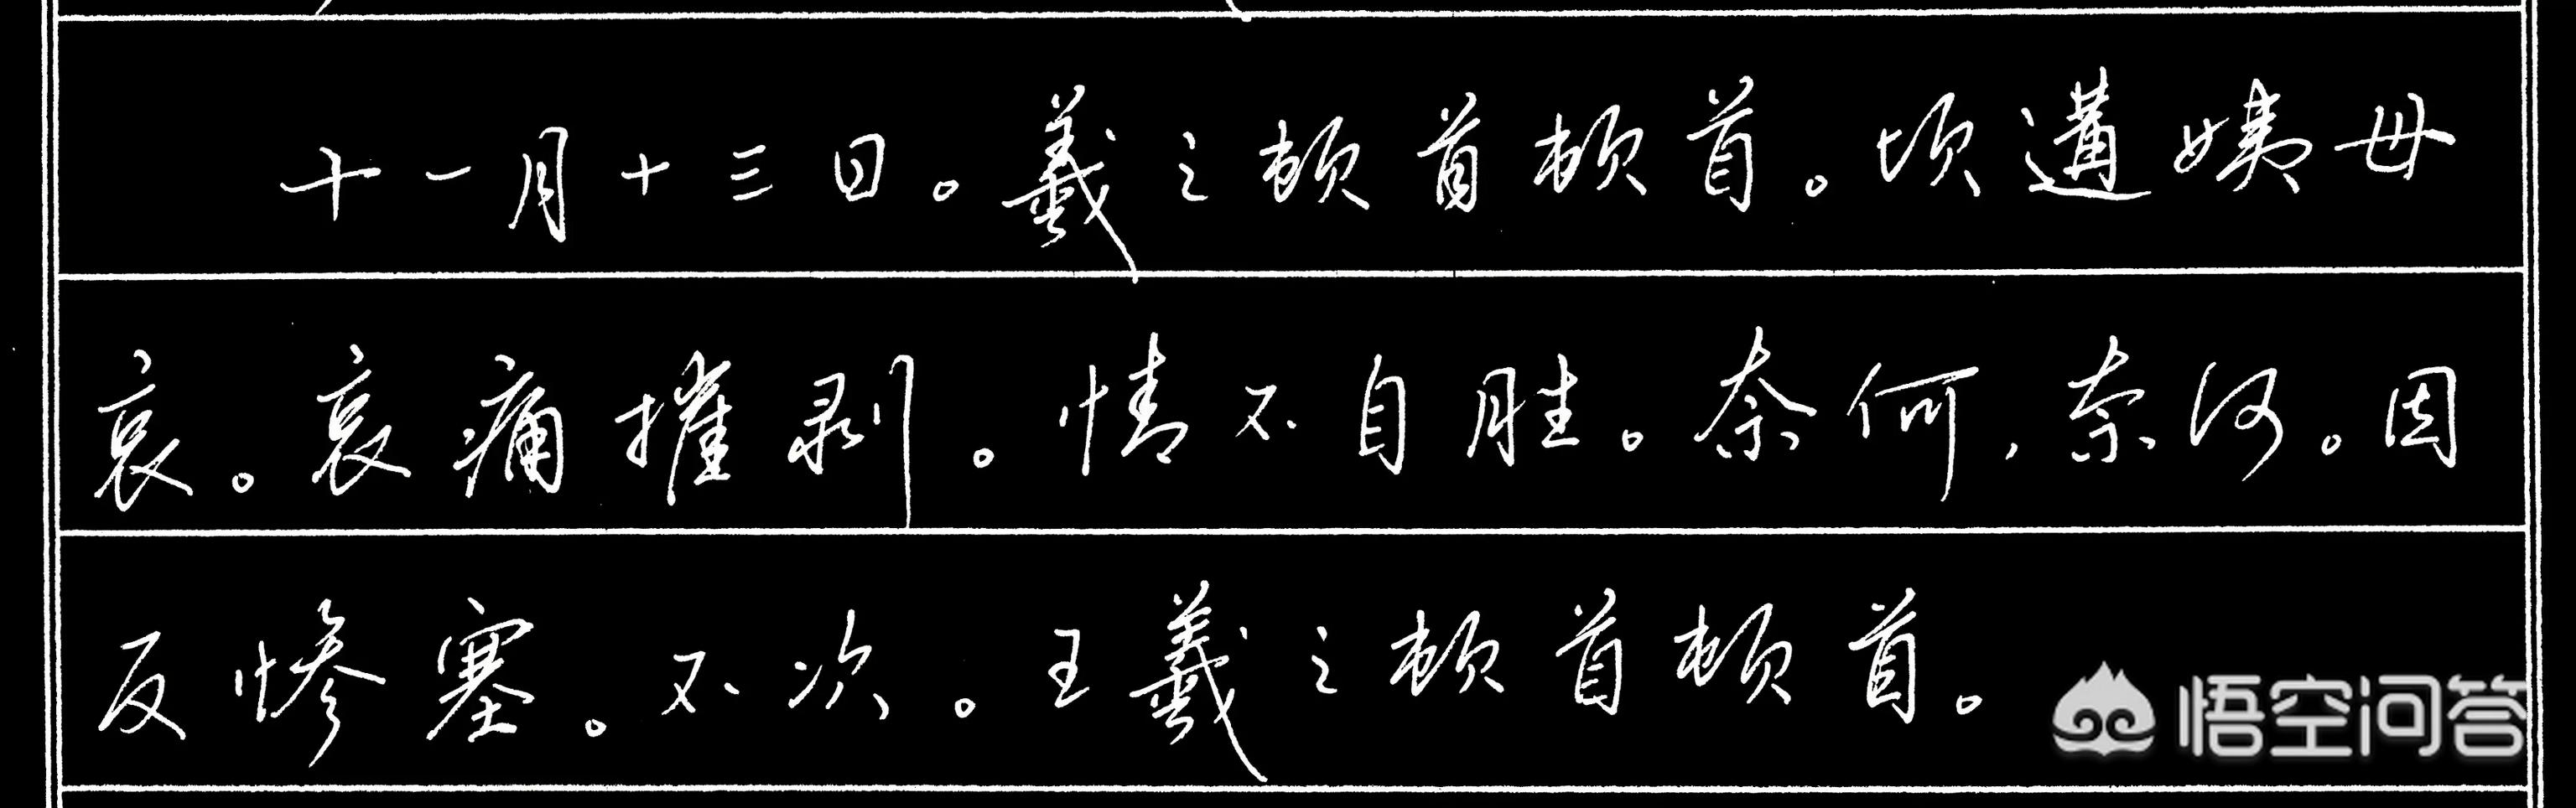 十一月十三日。羲之顿首顿首。顷遘姨母
哀。哀痛摧剥。情不自胜。奈何,奈何。因
反惨塞。不次。王羲之顿首顿首。
悟空问答